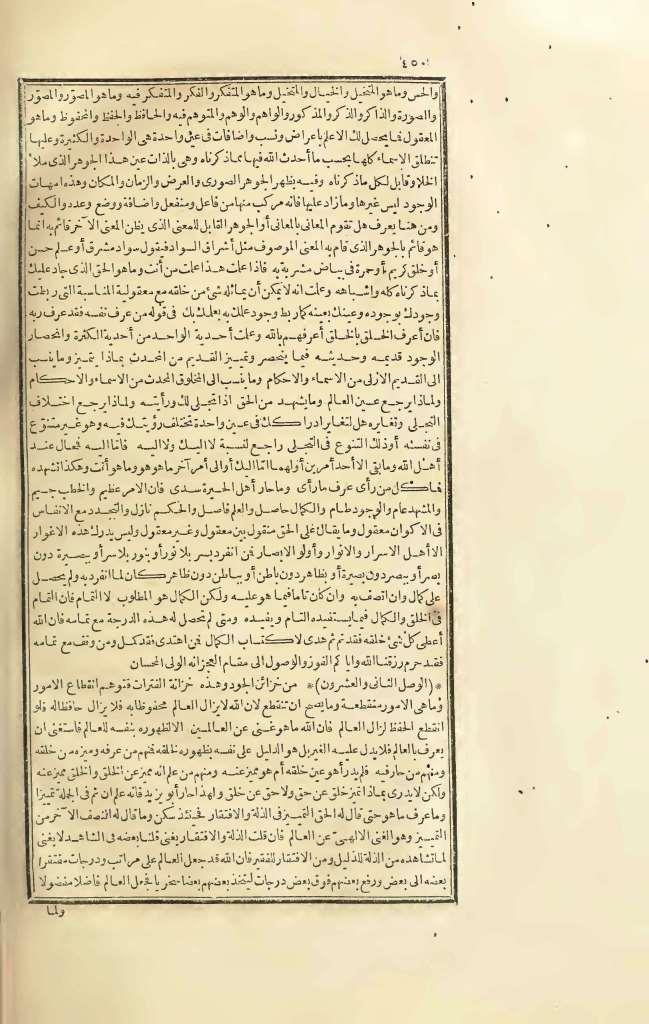 ٤٥٠
والحس وما هو المتخيل والخيال والمتخيل وما هو المتفكر والفكر والمتفكر فيه وما هو المصوّر والمصوّر
والصورة والذاكر والذكر والمذكور والواهم والوهم والمتوهم فيه والحافظ والحفظ والمحفوظ وما هو
المعقول فما يحصل لك الا علم باعراض ونسب واضافات فى عين واحدة هى الواحدة والكثيرة وعليها
تنطلق الاسماء كلها بحسب ما أحدث الله فيها مما ذكرناه وهى بالذات عين هذا الجوهر الذى ملأ
الخلاء وقابل لكل ما ذكرناه وفيه يظهر الجوهر الصورى والعرض والزمان والمكان وهذه امهات
الوجود ليس غيرها وما زاد عليها فانه مركب منها من فاعل ومنفعل واضافة ووضع وعدد والكيف
ومن هنا يعرف هل تقوم المعانى بالمعانى أو الجوهر القابل للمعنى الذى يظن المعنى الآخر قائم به انما
هو قائم بالجوهر الذى قام به المعنى الموصوف مثل أشراق السواد فيقول سواد مشرق أو علم حسن
أو خلق كريم أو حمرة فى بياض مشربة به فاذا علمت هذا علمت من أنت وما هو الحق الذى جاد عليك
بما ذكرناه كله واشباهه وعلمت انه لا يمكن أن يماثله شئ من خلقه مع معقولية المناسبة التى ربطت
وجودك بوجوده وعينك بعينه كما ربط وجود علمك به بعلمك بك فى قوله من عرف نفسه فقد عرف ربه
فان أعرف الخلق بالخلق أعرفهم بالله وعلمت أحدية الواحد من أحدية الكثرة وانحصار
الوجود قديمه وحديثه فيما ينحصر وتمييز القديم من المحدث بماذا يتميز وما ينسب
الى القديم الازلى من الاسماء والاحكام وما ينسب الى المخلوق المحدث من الاسماء والاحكام
ولماذا يرجع عين العالم وما يشهد من الحق اذا تجلى لك ورأيته ولماذا يرجع اختلاف
التجلى وتغايره هل لتغاير ادراكك فى عين واحدة تختلف رؤيتك فيه وهو غير متنوّع
فى نفسه أو ذلك التنوع فى التجلى راجع لنسبة لا اليك ولا اليه فاما اليه فمحال عند
أهل الله وما بقى الا أحد أمرين أو لهما اما اليك أو الى أمر آخر ما هو هو وما هو أنت وهكذا تشهده
فما كل من رأى عرف ما رأى وما حار أهل الحيرة سدى فان الامر عظيم والخطب جسيم
والمشهد عام والوجود طام والكمال حاصل والعلم فاصل والحكم نازل والتجدد مع الانفاس
فى الاكوان معقول وما يقال على الحق منقول بين معقول وغير معقول وليس يدرك هذه الاغوار
الا أهل الاسرار والانوار وأولو الابصار فمن انفرد بسر بلا نور أو بنور بلا سر أو ببصيرة دون
بصر أو ببصر دون بصيرة أو بظاهر دون باطن أو بباطن دون ظاهر كان لما انفرد به ولم يحصل
على كمال وان اتصف به وان كان تاما فيما هو عليه ولكن الكمال هو المطلوب لا التمام فان التمام
فى الخلق والكمال فيما يستفيده التام ويفيده ومتى لم تحصل له هذه الدرجة مع تمامه فان الله
أعطى كل شئ خلقه فقد تم ثم هدى لاكتساب الكمال فمن اهتدى فقد كمل ومن وقف مع تمامه
فقد حرم رزقنا الله واياكم الفوز والوصول الى مقام العجز انه الولى المحسان
* (الوصل الثانى والعشرون) * من خزائن الجود وهذه خزانة الفترات فتوهم انقطاع الامور
وما هى الامور منقطعة وما يصح ان تنقطع لان الله لا يزال العالم محفوظا به فلا يزال حافظا له فلو
انقطع الحفظ لزال العالم فان الله ما هو غنى عن العالمين الا لظهوره بنفسه للعالم فاستغنى ان
يعرف بالعالم فلا يدل عليه الغير بل هو الدليل على نفسه بظهوره لخلقه فمنهم من عرفه وميزه من خلقه
ومنهم من حار فيه فلم يدر أهو عين خلقه أم هو متميز عنه ومنهم من علم انه مميز عن الخلق والخلق مميز عنه
ولكن لا يدرى بماذا تميز خلق عن حق ولا حق عن خلق ولهذا حار أبو يزيد فانه علم ان ثم فى الجلة تمييزا
وما عرف ما هو حتى قال له الحق التمييز فى الذلة والافتقار فحينئذ سكن وما قال له النصف الآخر من
التمييز وهو الغنى الالهى عن العالم فان قلت الذلة والافتقار يغنى قلنا بعضه فى الشاهد لا يغنى
لما تشاهده من الذلة للذليل ومن الافتقار للفقير فان الله قد جعل العالم على مراتب ودرجات مفتقرا
بعضه الى بعض ورفع بعضهم فوق بعض درجات ليتخذ بعضهم بعضا سخريا فجعل العالم فاضلا مفضولا
ولما